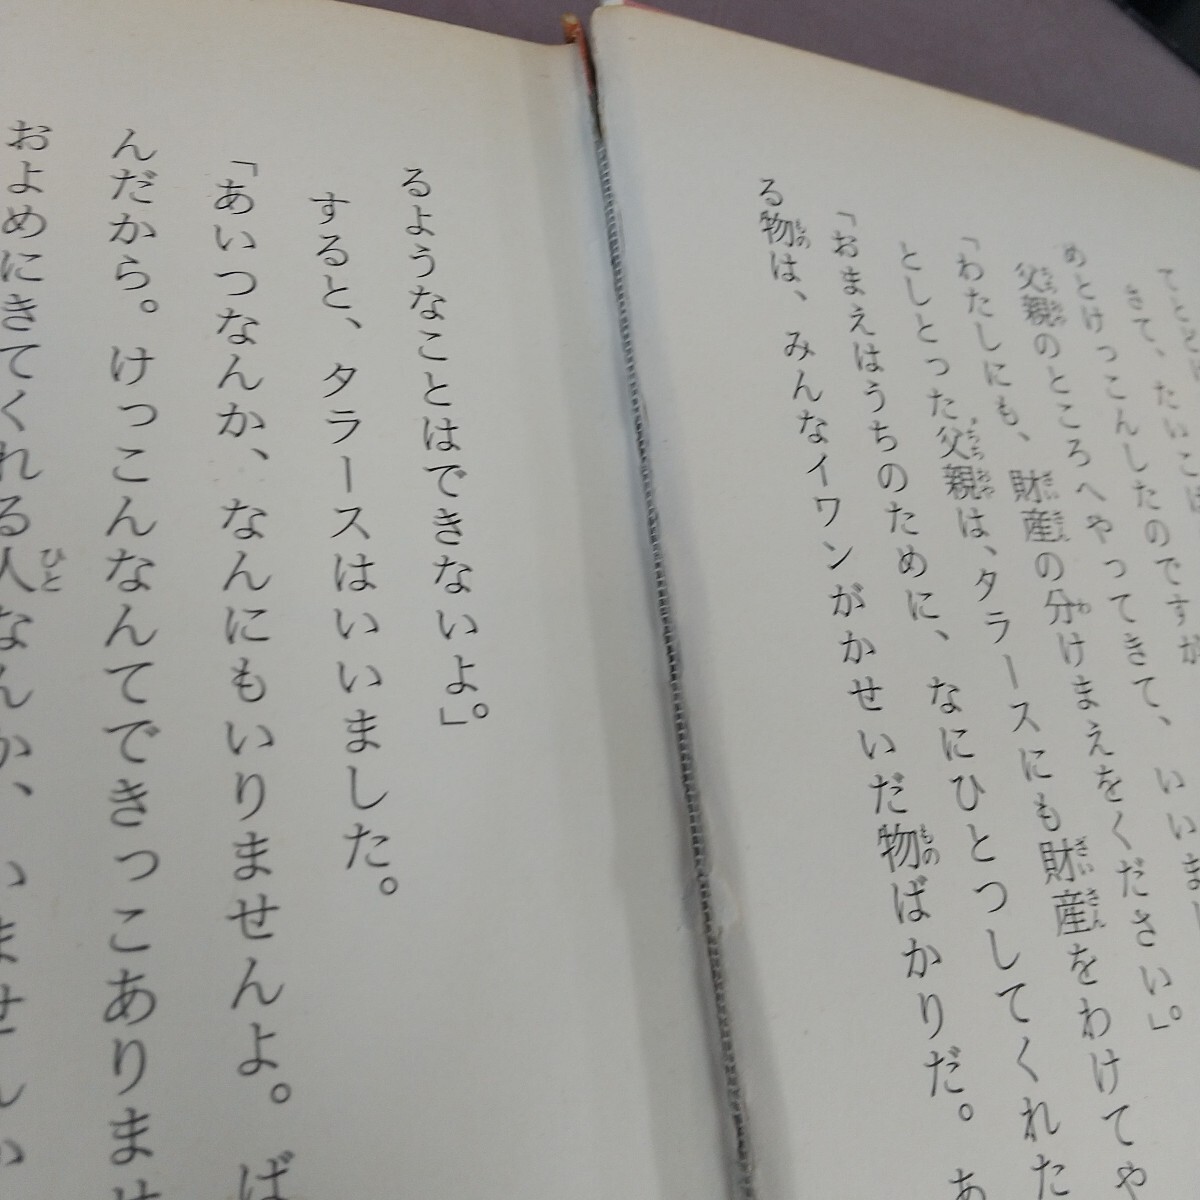 さて、たいこは
めとけっこんしたのですが
父親のところへやってきて、いいまし
「わたしにも、財産の分けまえをください。」
としとった父親は、タラースにも財産をわけてや
「おまえはうちのために、なにひとつしてくれた
る物は、みんなイワンがかせいだ物ばかりだ。あ
るようなことはできないよ。」
すると、タラースはいいました。
「あいつなんか、なんにもいりませんよ。ば
んだから。けっこんなんてできっこありませ
およめにきてくれる人なんか、いませ